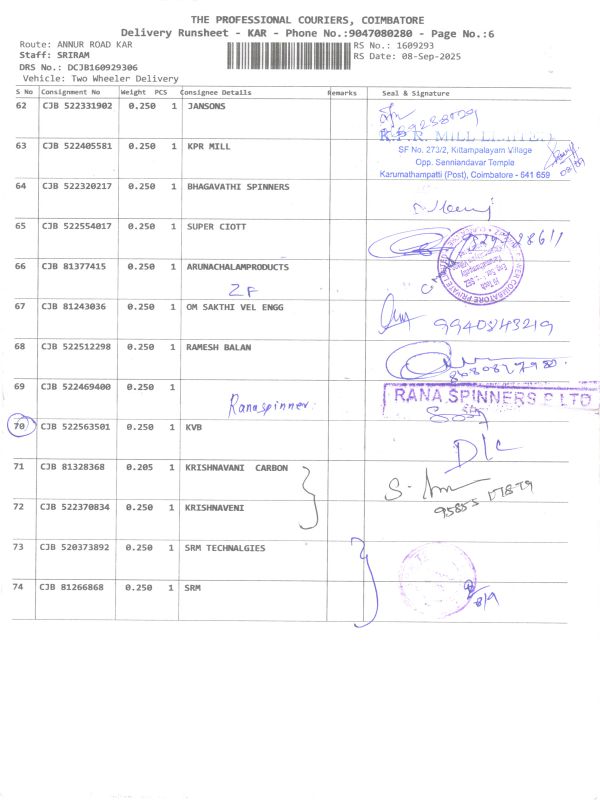 THE PROFESSIONAL COURIERS, COIMBATORE
Delivery Runsheet - KAR - Phone No.:9047080280 - Page No.:6
Route: ANNUR ROAD KAR RS No.: 1609293
Staff: SRIRAM RS Date: 08-Sep-2025
DRS No.: DCJB160929306
Vehicle: Two Wheeler Delivery
S No Consignment No Weight PCS Consignee Details Remarks Seal & Signature
62 CJB 522331902 0.250 1 JANSONS
63 CJB 522405581 0.250 1 KPR MILL
K.P.R. MILL LIMITED
SF No. 273/2, Kittampalayam Village
Opp. Senniandavar Temple
Karumathampatti (Post), Coimbatore - 641 659
08/09
64 CJB 522320217 0.250 1 BHAGAVATHI SPINNERS
65 CJB 522554017 0.250 1 SUPER CIOTT
66 CJB 81377415 0.250 1 ARUNACHALAMPRODUCTS
ZF
67 CJB 81243036 0.250 1 OM SAKTHI VEL ENGG
9940843219
68 CJB 522512298 0.250 1 RAMESH BALAN
69 CJB 522469400 0.250 1
Ranaspinner.
RANA SPINNERS P LTD
70 CJB 522563501 0.250 1 KVB
D/c
71 CJB 81328368 0.205 1 KRISHNAVANI CARBON
72 CJB 522370834 0.250 1 KRISHNAVENI
73 CJB 520373892 0.250 1 SRM TECHNALGIES
74 CJB 81266868 0.250 1 SRM
8/9